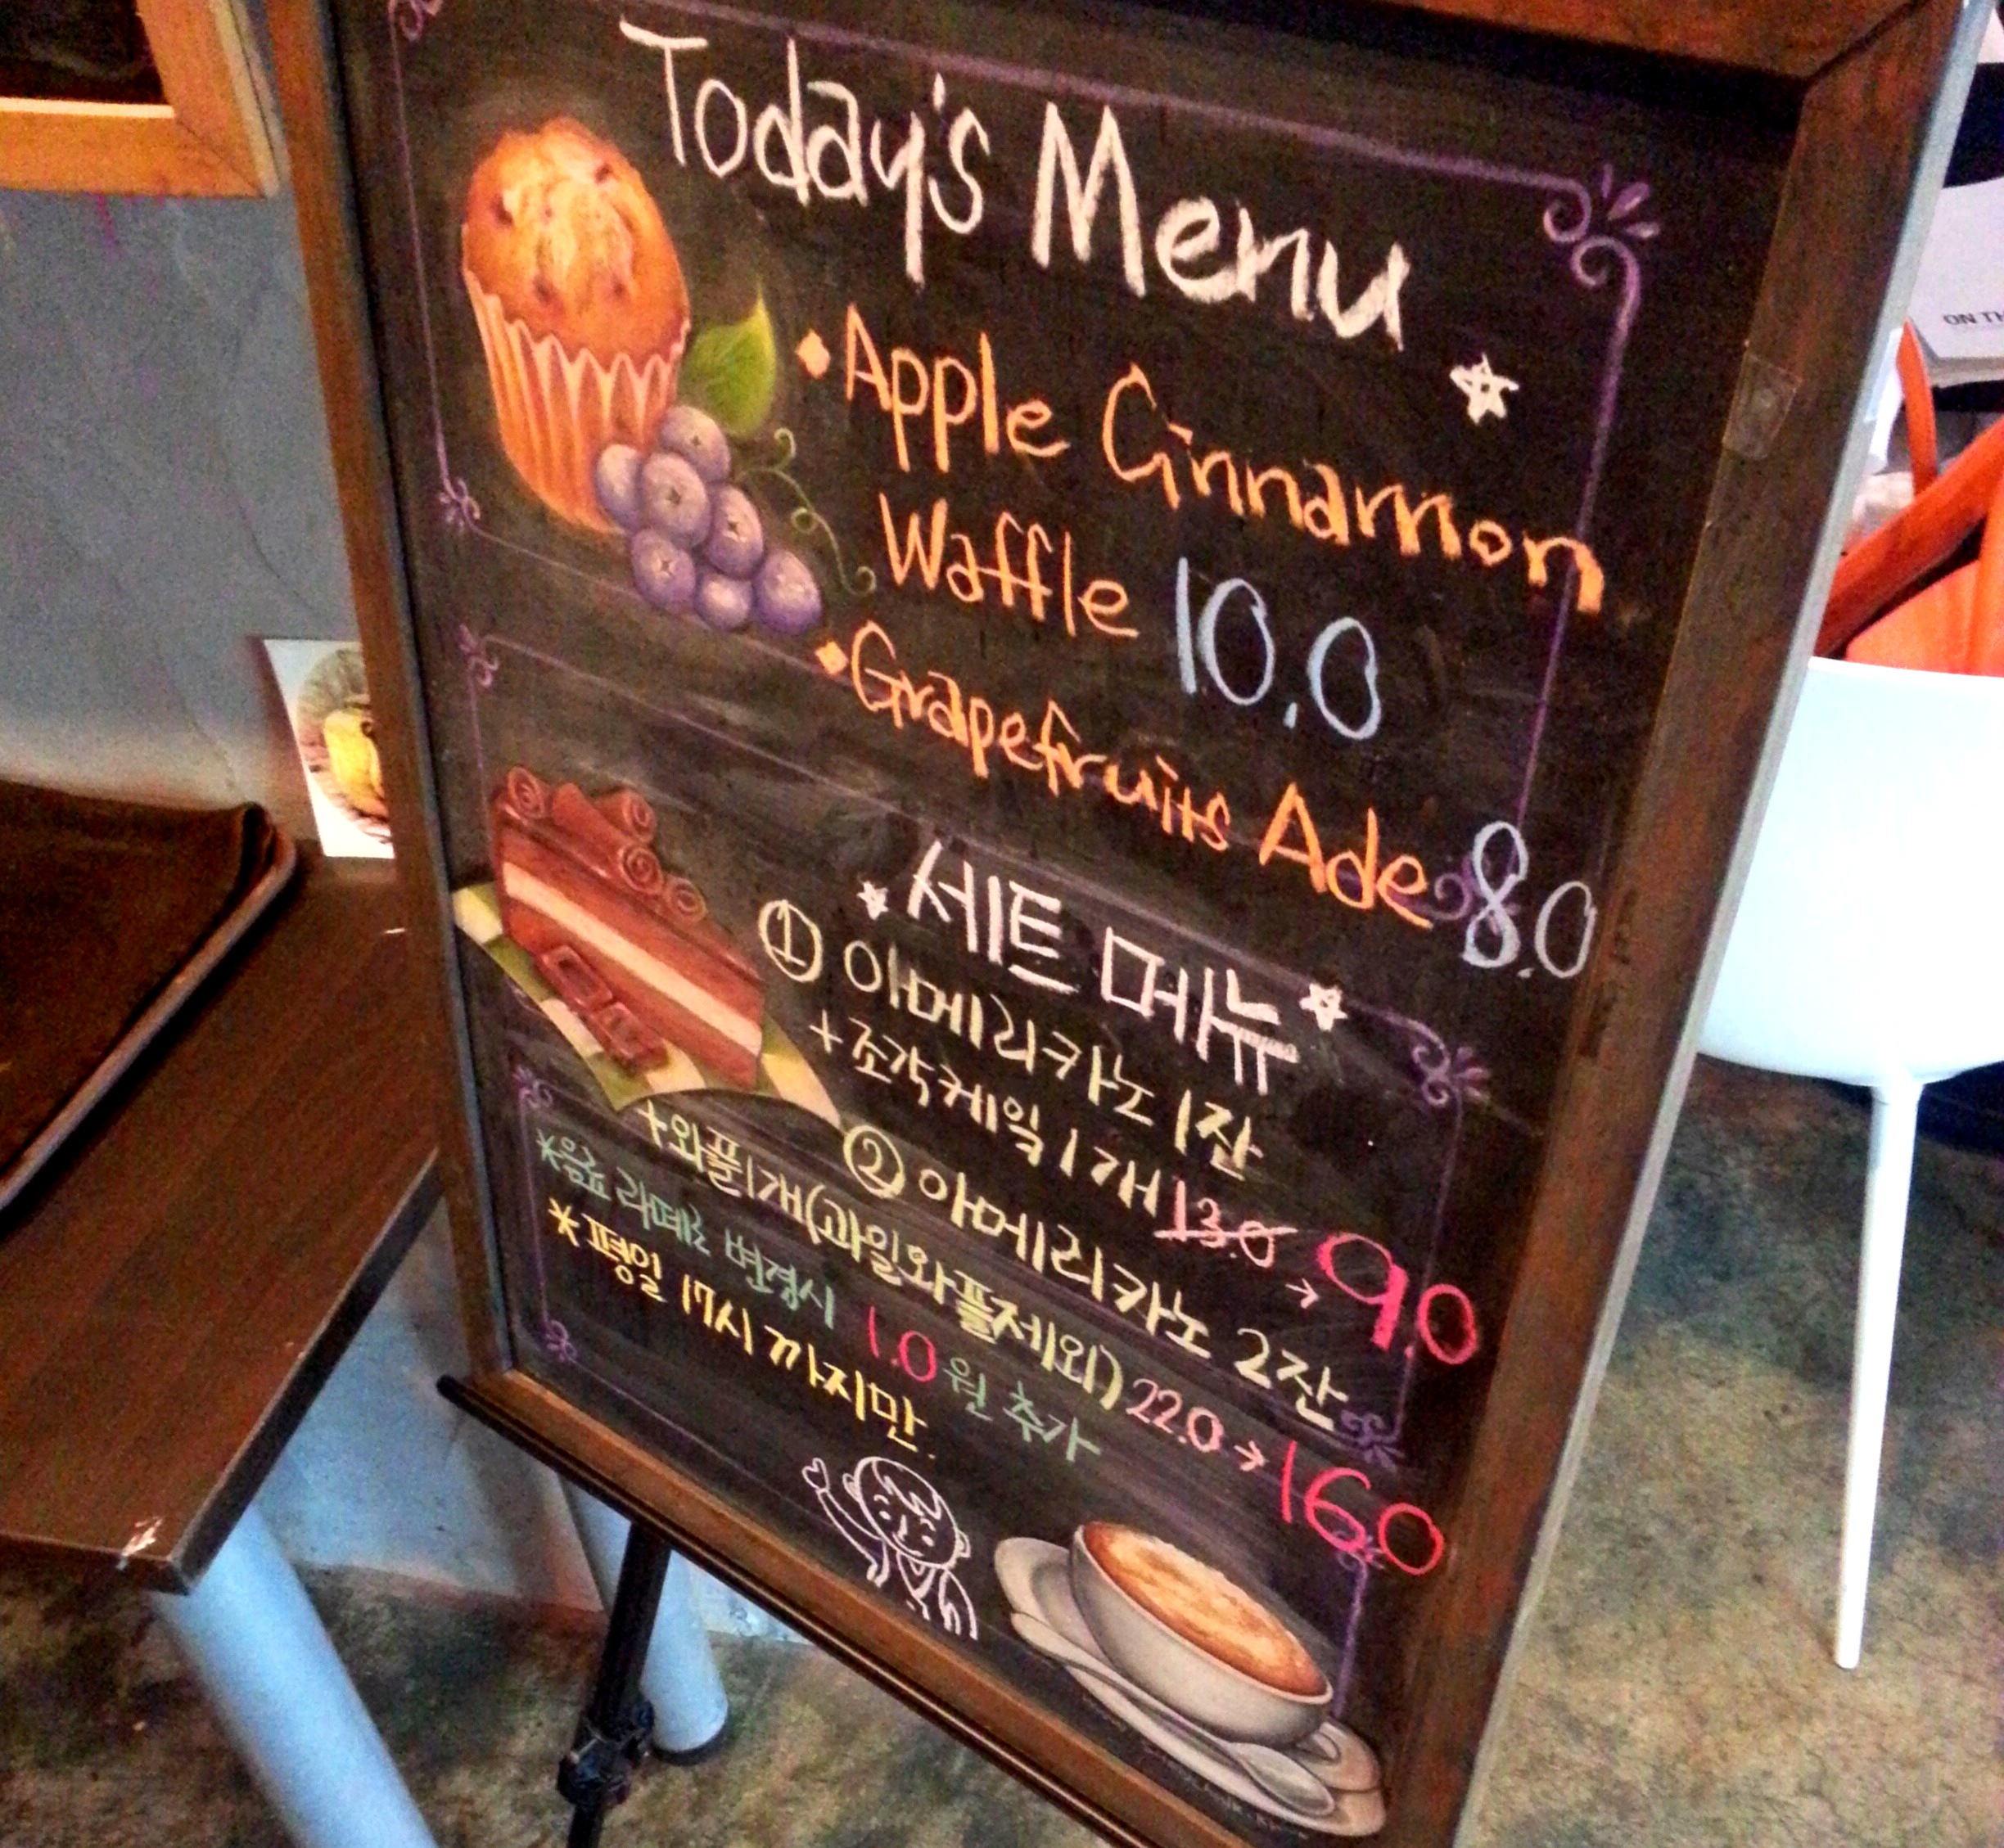 Today's Menu
Apple Cinnamon
Waffle 10.0
Grapefruits Ade 8.0
세트 메뉴
① 아메리카노 1잔
+조각케익 1개 13.0 → 9.0
② 아메리카노 2잔
+와플1개(과일와플제외) 22.0 → 16.0
*음료 라떼로 변경시 1.0원 추가
*평일 17시 까지만.
ON TH